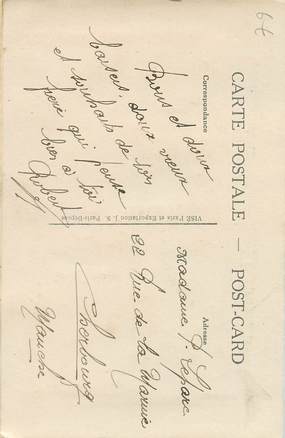 6€
CARTE POSTALE — POST-CARD
Correspondance
Adresse
Bons et doux
baisers, doux vœux
et souhaits de ton
frère qui pense
bien à toi
Robert
VISÉ Paris et Exportation J. S. Paris-Déposé
Madame P. Lepare
22 Rue de la Marine
Cherbourg
Manche